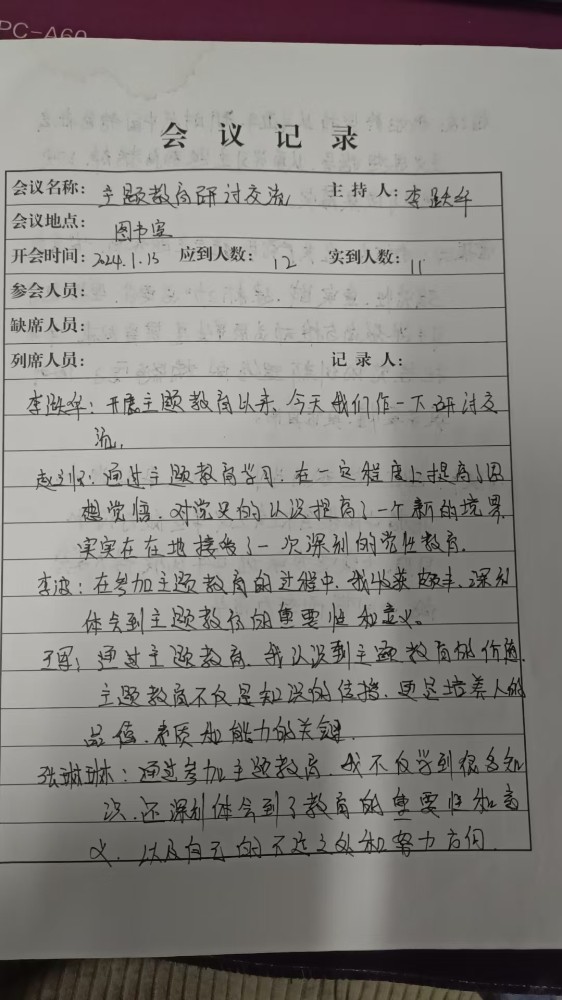 PC-A60
会议记录
会议名称：主题教育研讨交流 主持人：李跃华
会议地点：图书室
开会时间：2024.1.15 应到人数：12 实到人数：11
参会人员：
缺席人员：
列席人员： 记录人：
李跃华：开展主题教育以来，今天我们作一下研讨交
流，
通过主题教育学习，在一定程度上提高了思
想觉悟，对党史的认识提高了一个新的境界
实实在在地接受了一次深刻的党性教育。
李波：在参加主题教育的过程中，我收获颇丰，深刻
体会到主题教育的重要性和意义。
王军：通过主题教育，我认识到主题教育的价值，
主题教育不仅是知识的传授，更是培养人的
品德、素质和能力的关键。
张琳琳：通过参加主题教育，我不仅学到很多知
识，还深刻体会到了教育的重要性和意
义，以及自己的不足之处和努力方向。